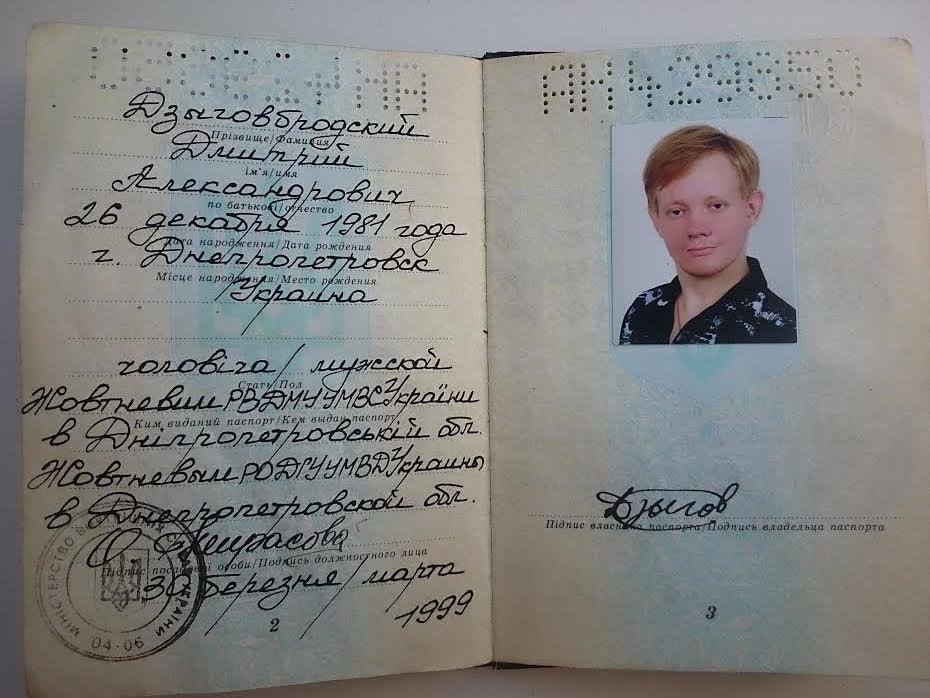 Дзыговбродский
Прізвище/Фамилия
Дмитрий
ім'я/имя
Александрович
по батькові/отчество
26 декабря 1981 года
Дата народження/Дата рождения
г. Днепропетровск
Місце народження/Место рождения
Украина
чоловіча / мужской
Стать/Пол
Жовтневим РВДМУ УМВС України
Ким виданий паспорт/Кем выдан паспорт
в Дніпропетровській обл.
Жовтневым РОДГУ УМВД Украины
в Днепропетровской обл.
Підпис посадової особи/Подпись должностного лица
30 березня / марта
1999
МІНІСТЕРСТВО
УКРАЇНИ
04-06
2
АМ429650
Дзыгов
Підпис власника паспорта/Подпись владельца паспорта
3